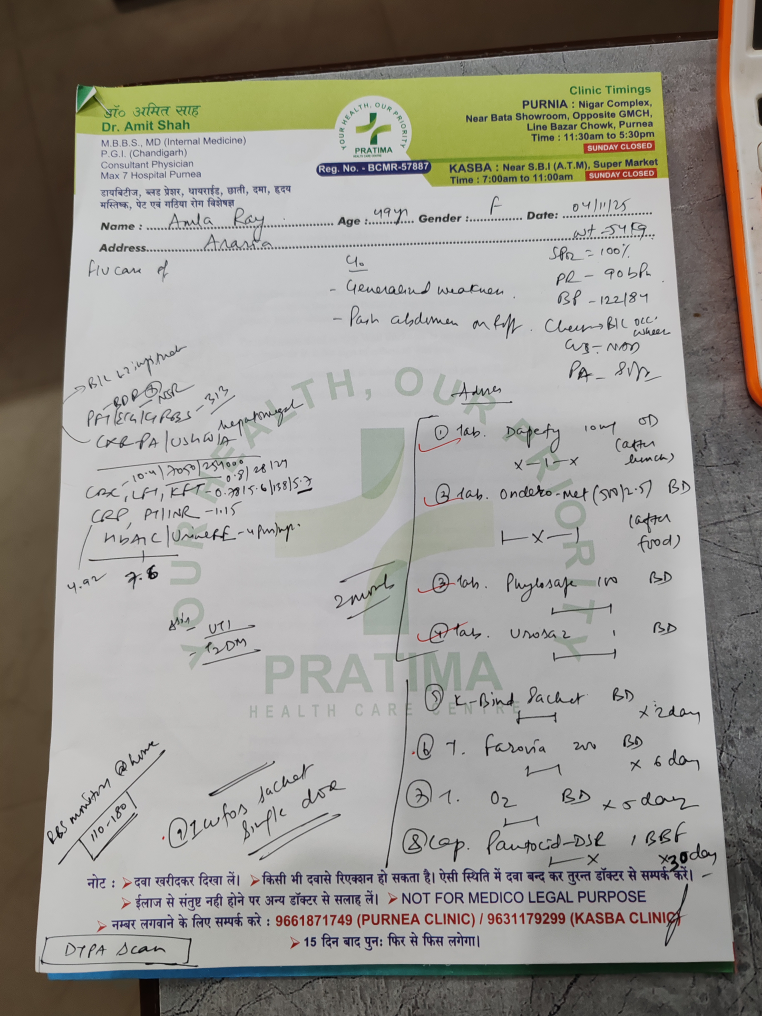 डॉ० अमित साह
Dr. Amit Shah
M.B.B.S., MD (Internal Medicine)
P.G.I. (Chandigarh)
Consultant Physician
Max 7 Hospital Purnea
डायबिटीज, ब्लड प्रेशर, थायराईड, छाती, दमा, हृदय
मस्तिष्क, पेट एवं गठिया रोग विशेषज्ञ
YOUR HEALTH, OUR PRIORITY
PRATIMA
HEALTH CARE CENTRE
Reg. No. - BCMR-57887
Clinic Timings
PURNIA : Nigar Complex,
Near Bata Showroom, Opposite GMCH,
Line Bazar Chowk, Purnea
Time : 11:30am to 5:30pm
SUNDAY CLOSED
KASBA : Near S.B.I (A.T.M), Super Market
Time : 7:00am to 11:00am SUNDAY CLOSED
Name : Ray Age : 49yr Gender : F Date: 04/11/25
Address Araria wt - 54kg
F/U case of
C/o
- Generalised weakness
- Pain abdomen on & off
SPO2 = 100%
PR - 90 bpm
BP - 122/84
Chest → B/L occ. wheeze
CVS - NAD
PA - Soft
PFT/ECG/RBS - 313
CXR-PA/USG W/A hepatomegaly
CBC, LFT, KFT
CRP, PT/INR - 1.15
HbA1C/Urine
4.92 7.6
UTI
T2DM
2 month
Advice
① Tab. Dapefy 10mg OD
x-1-x (after lunch)
② Tab. Ondero-Met (500/2.5) BD
1-x-1 (after food)
③ Tab. 100 BD
④ Tab. BD
⑤ K-Bind Sachet BD x 2day
⑥ T. Farovia 200 BD x 6 day
⑦ T. O2 BD x 5 day
⑧ Cap. Pantocid-DSR 1 BBF x 30 day
⑨ sachet
Single dose
RBS monitor @ home
110-180
DTPA Scan
YOUR HEALTH, OUR PRIORITY
PRATIMA
HEALTH CARE CENTRE
नोट : ➤ दवा खरीदकर दिखा लें। ➤ किसी भी दवासे रिएक्शन हो सकता है। ऐसी स्थिति में दवा बन्द कर तुरन्त डॉक्टर से सम्पर्क करें।
➤ ईलाज से संतुष्ट नही होने पर अन्य डॉक्टर से सलाह लें। ➤ NOT FOR MEDICO LEGAL PURPOSE
➤ नम्बर लगवाने के लिए सम्पर्क करे : 9661871749 (PURNEA CLINIC) / 9631179299 (KASBA CLINIC)
➤ 15 दिन बाद पुनः फिर से फिस लगेगा।